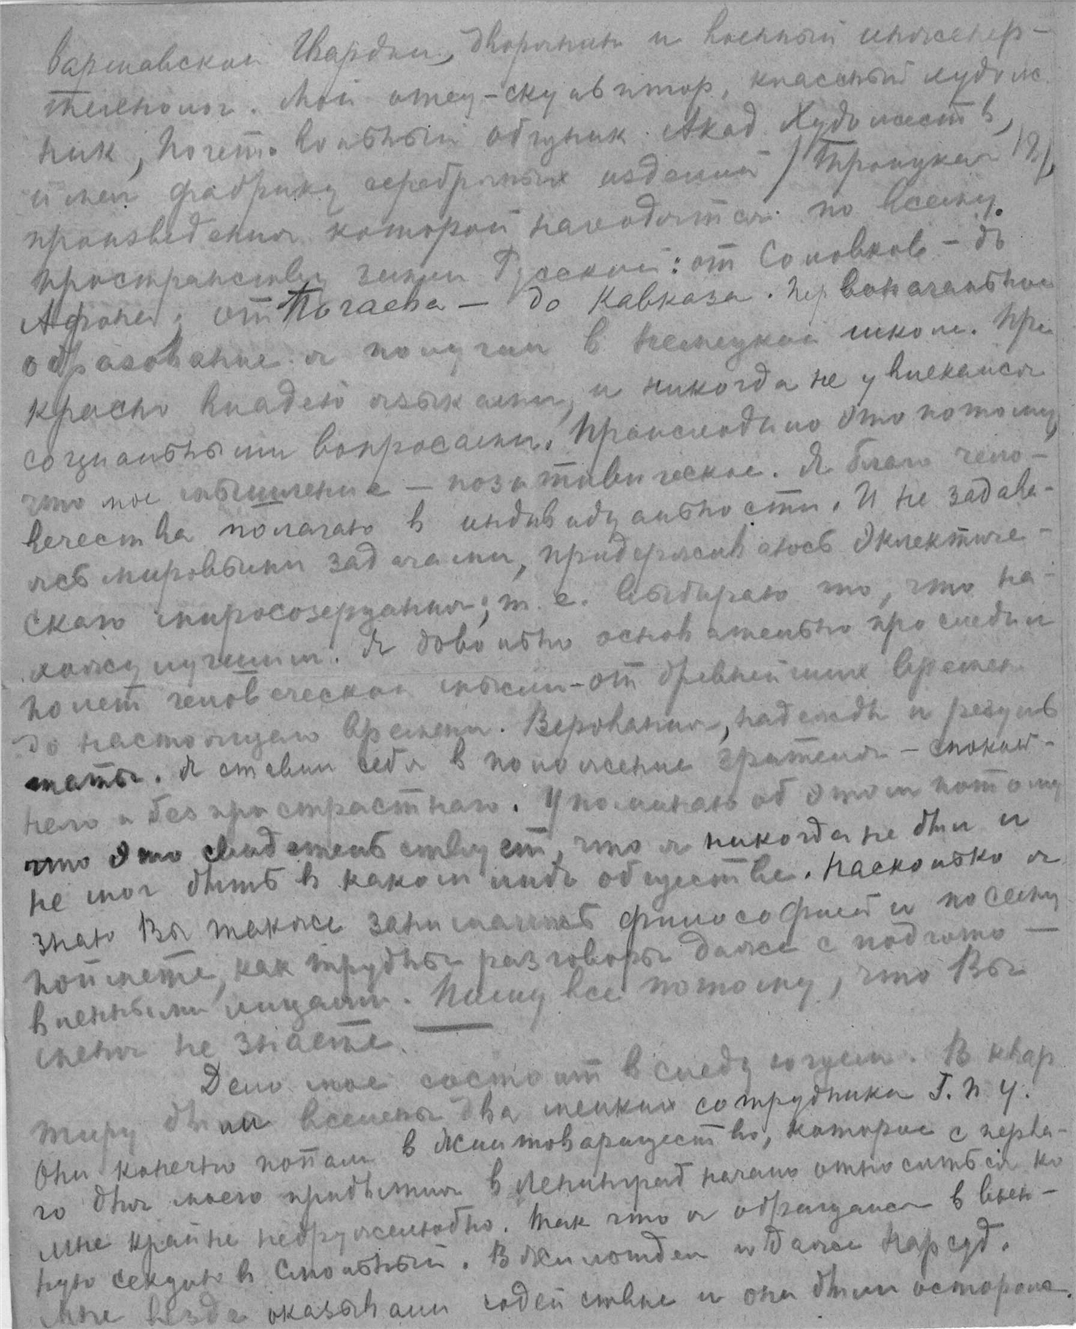 Варшавской Гвардии, дворянин и военный инженер-
технолог. Мой отец-скульптор, классный худож
ник, Почет. вольный общник Акад. Художеств,
имел фабрику серебряных изделий /Троицкая 13/,
произведения которой находятся по всему
пространству земли Русской: от Соловков - до
Афона; от Почаева - до Кавказа. Первоначальное
образование я получил в немецкой школе. Пре
красно владею языками, и никогда не увлекался
социальными вопросами. Происходило это потому,
что мое мышление - позитивическое. Я благо чело-
вечества полагаю в индивидуальности. И не задава-
ясь мировыми задачами, придерживаюсь эклектиче-
скаго миросозерцания; т.е. выбираю то, что на-
хожу лучшим. Я довольно основательно проследил
полет человеческой мысли-от древнейших времен
до настоящаго времени. Верования, надежды и резуль
таты. Я ставил себя в положение зрителя - спокой-
наго и безпристрастнаго. Упоминаю об этом потому
что это свидетельствует, что я никогда не был и
не мог быть в каком либо обществе. Насколько я
знаю Вы также занимаетесь философией и посему
поймете, как трудны разговоры даже с подгото-
вленными лицами. Пишу все потому, что Вы
меня не знаете.
Дело мое состоит в следующем. В квар
тиру были вселены два мелких сотрудника Г.П.У.
Они конечно попали в Жилтоварищество, которое с перва-
го дня моего прибытия в Ленинград начало относиться ко
мне крайне недружелюбно. Так что я обращался в воен-
ную секцию в Смольный. В Жилотдел и даже Нарсуд.
Мне везде оказывали содействие и они были осторож